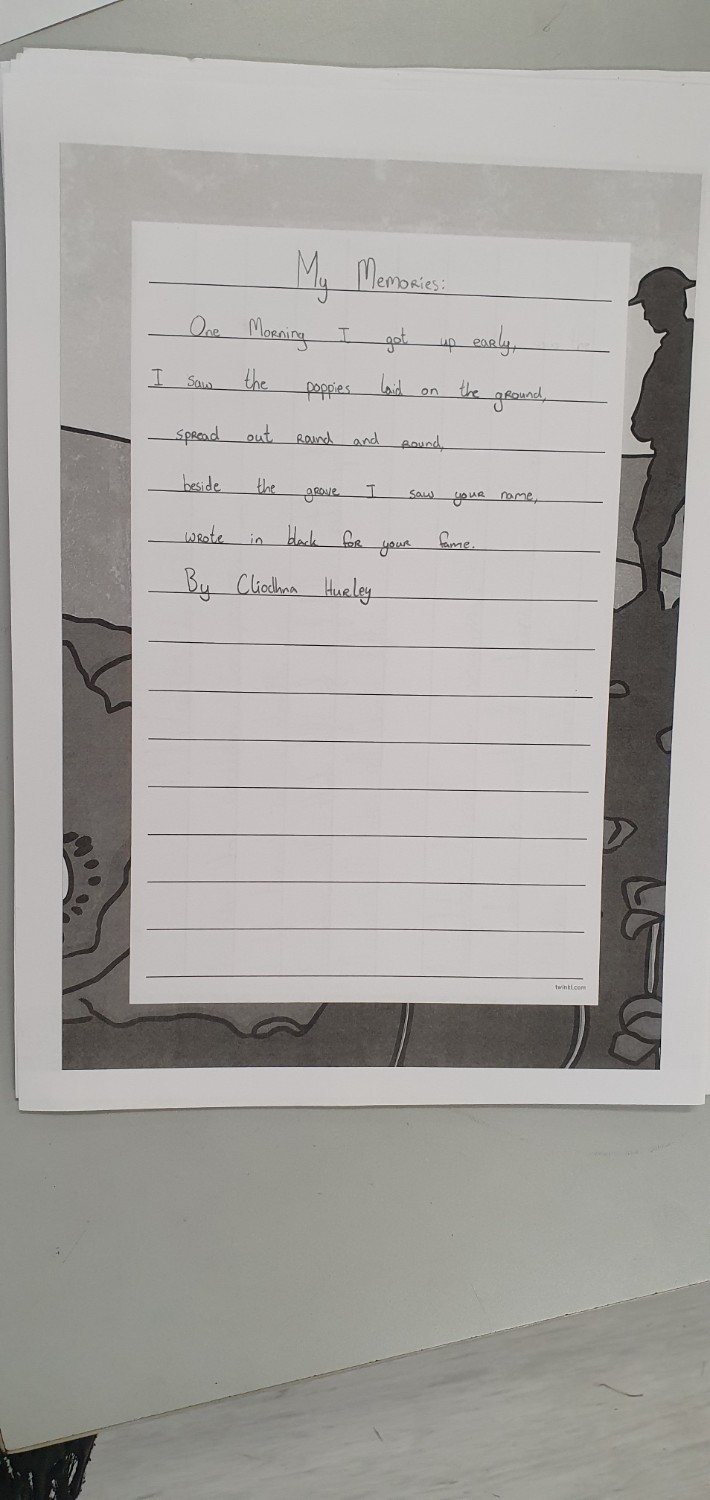 My Memories:
One Morning I got up early,
I saw the poppies laid on the ground,
spread out round and round,
beside the grave I saw your name,
wrote in black for your fame.
By Cliodhna Hurley
twinkl.com